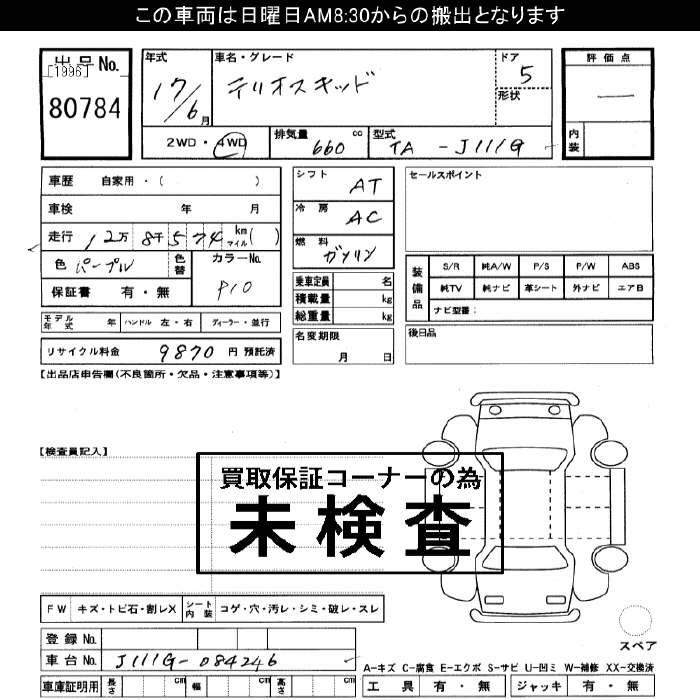 この車両は日曜日AM8:30からの搬出となります
出品No.
[1996]
80784
年式
17/6月
車名・グレード
テリオスキッド
ドア
5
形状
評価点
―
内装
2WD・4WD
排気量 660 cc
型式 TA - J111G
車歴 自家用・( )
車検 年 月
走行 12万8千574 km マイル( )
色 パープル
色替
カラーNo.
P10
保証書 有・無
シフト AT
冷房 AC
燃料 ガソリン
乗車定員 名
積載量 kg
総重量 kg
セールスポイント
装備品
S/R 純A/W P/S P/W ABS
純TV 純ナビ 革シート 外ナビ エアB
ナビ型番:
モデル年式 年 ハンドル 左・右 ディーラー・並行
名変期限
月 日
後日品
リサイクル料金 9870 円 預託済
【出品店申告欄(不良箇所・欠品・注意事項等)】
【検査員記入】
買取保証コーナーの為
未検査
FW キズ・トビ石・割レX シート内装 コゲ・穴・汚レ・シミ・破レ・スレ
登録No.
車台No. J111G-084246
車庫証明用 長さ cm 幅 cm 高さ cm
スペア
A-キズ C-腐食 E-エクボ S-サビ U-凹ミ W-補修 XX-交換済
工具 有・無 ジャッキ 有・無